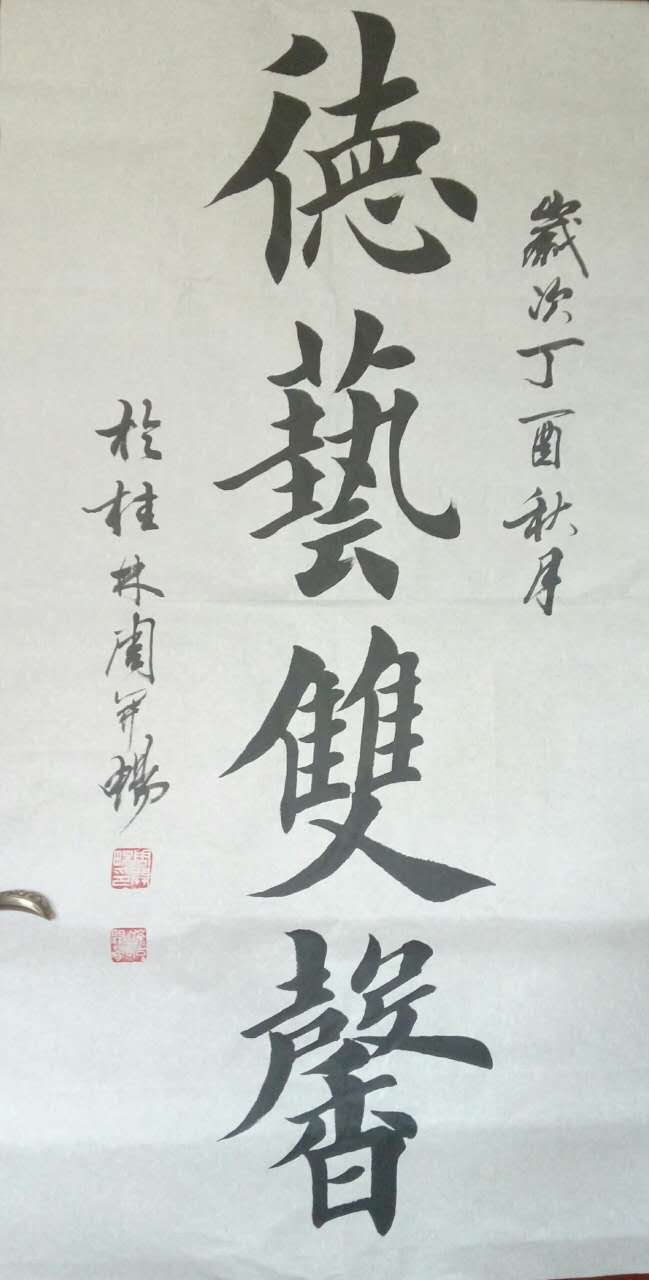 歲次丁酉秋月
德藝雙馨
於桂林周開暢